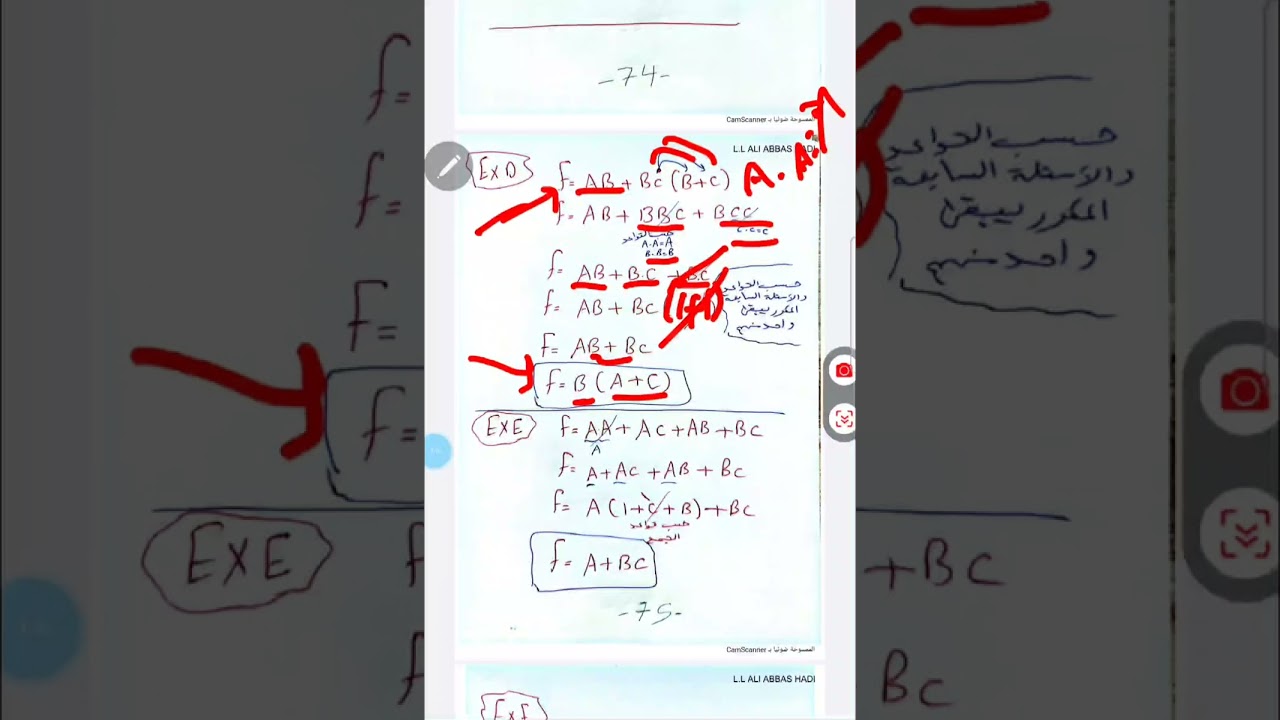 -74-
الممسوحة ضوئيا بـ CamScanner
L.L ALI ABBAS HADI
A. A. A
EXD
f= AB + BC (B+C)
f= AB + BBC + BCC
حسب القواعد
C.C=C
A.A=A
B.B=B
f= AB + B.C + B.C
f= AB + BC (1+1)
حسب القواعد
والاسئلة السابقة
المكرر يبقى
واحد منهم
f= AB + BC
f= B (A+C)
EXE
f= AA + AC + AB + BC
A
f= A + AC + AB + BC
f= A (1+C+B) + BC
حسب قواعد
الجمع
f= A + BC
-75-
الممسوحة ضوئيا بـ CamScanner
L.L ALI ABBAS HADI